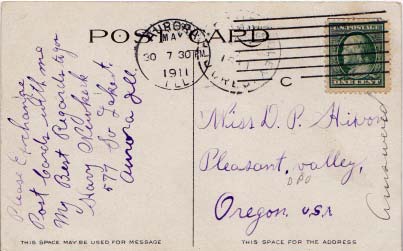 POST CARD
AURORA
MAY
30 7 30 PM
1911
ILL
C
U.S. POSTAGE
ONE CENT
Please Exchange
Post Cards with me
My Best Regards to you
Harry
577 So Lake st
Aurora Ill
Miss D. P.
Pleasant, valley,
Oregon. U.S.A
Answered
THIS SPACE MAY BE USED FOR MESSAGE
THIS SPACE FOR THE ADDRESS